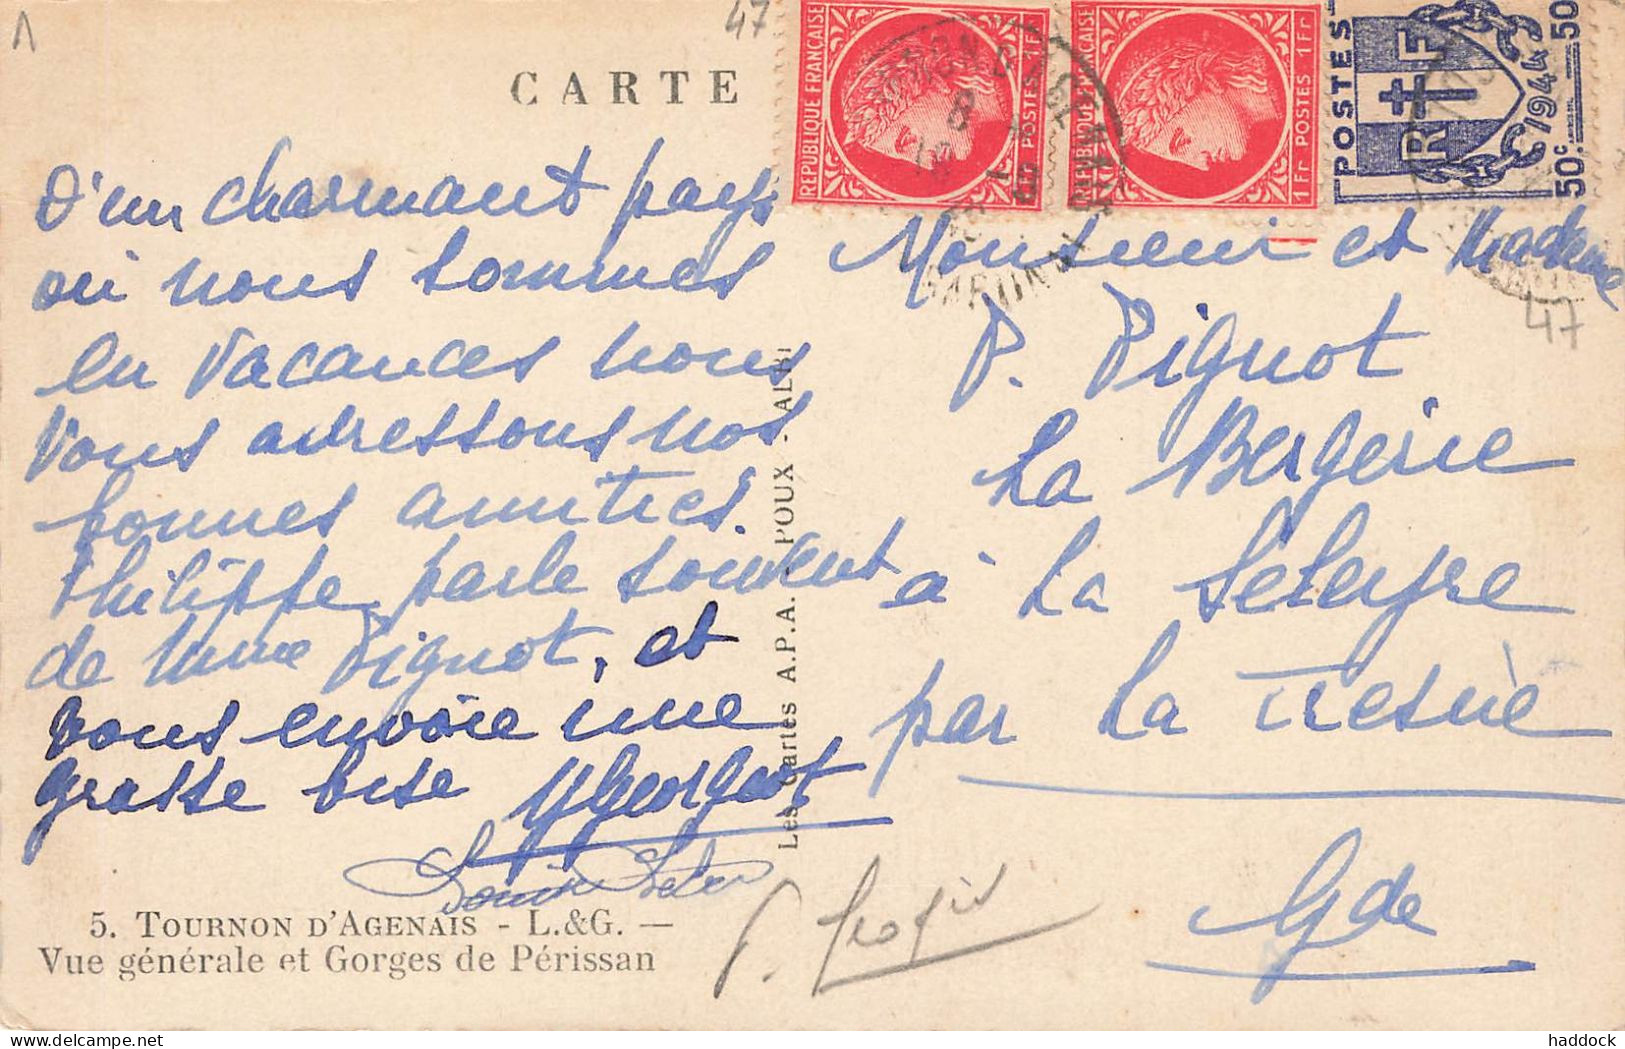 47
CARTE
RÉPUBLIQUE FRANÇAISE
POSTES 1Fr
RÉPUBLIQUE FRANÇAISE
1Fr POSTES 1Fr
POSTES
RF
1944
50c 50
D'un charmant pays
où nous sommes
en vacances nous
vous adressons nos
bonnes amitiés.
Philippe parle souvent
de Mme Pignot, et
vous envoie une
grosse bise
Monsieur et Madame
P. Pignot
La Bergerie
à La
par La Tresne
Gde
47
Les Cartes A.P.A. - POUX - ALBI
5. TOURNON D'AGENAIS - L.&G. —
Vue générale et Gorges de Périssan
haddock